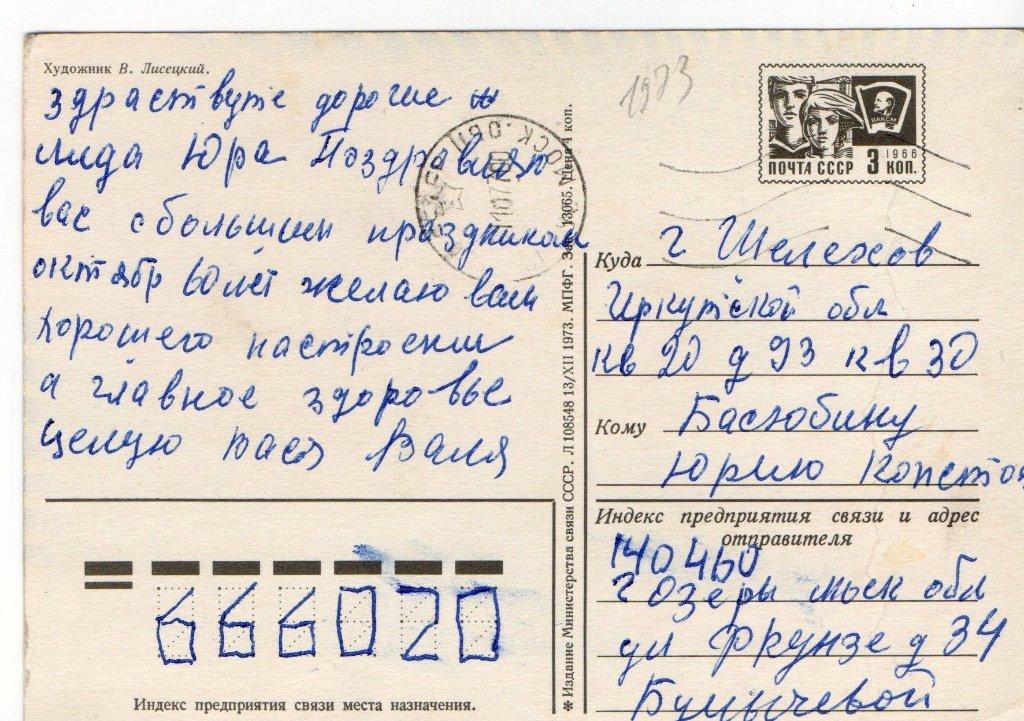 Художник В. Лисецкий.
здраствуте дорогие
лида Юра Поздравляю
вас с большим праздником
октябр 60 лет желаю вам
хорошего настроении
а главное здоровье
целую Вася Валя
1973
ВЛКСМ
1966
ПОЧТА СССР 3 КОП.
Куда г Шелехов
Иркутской обл
кв 20 д 93 кв 30
Кому Басюбину
Юрию Констан
Индекс предприятия связи и адрес
отправителя
140460
г Озеры моск обл
ул Фрунзе д 34
666020
Индекс предприятия связи места назначения.
✱ Издание Министерства связи СССР. Л 108548 13/XII 1973. МПФГ. Зак. 13065. Цена 4 коп.